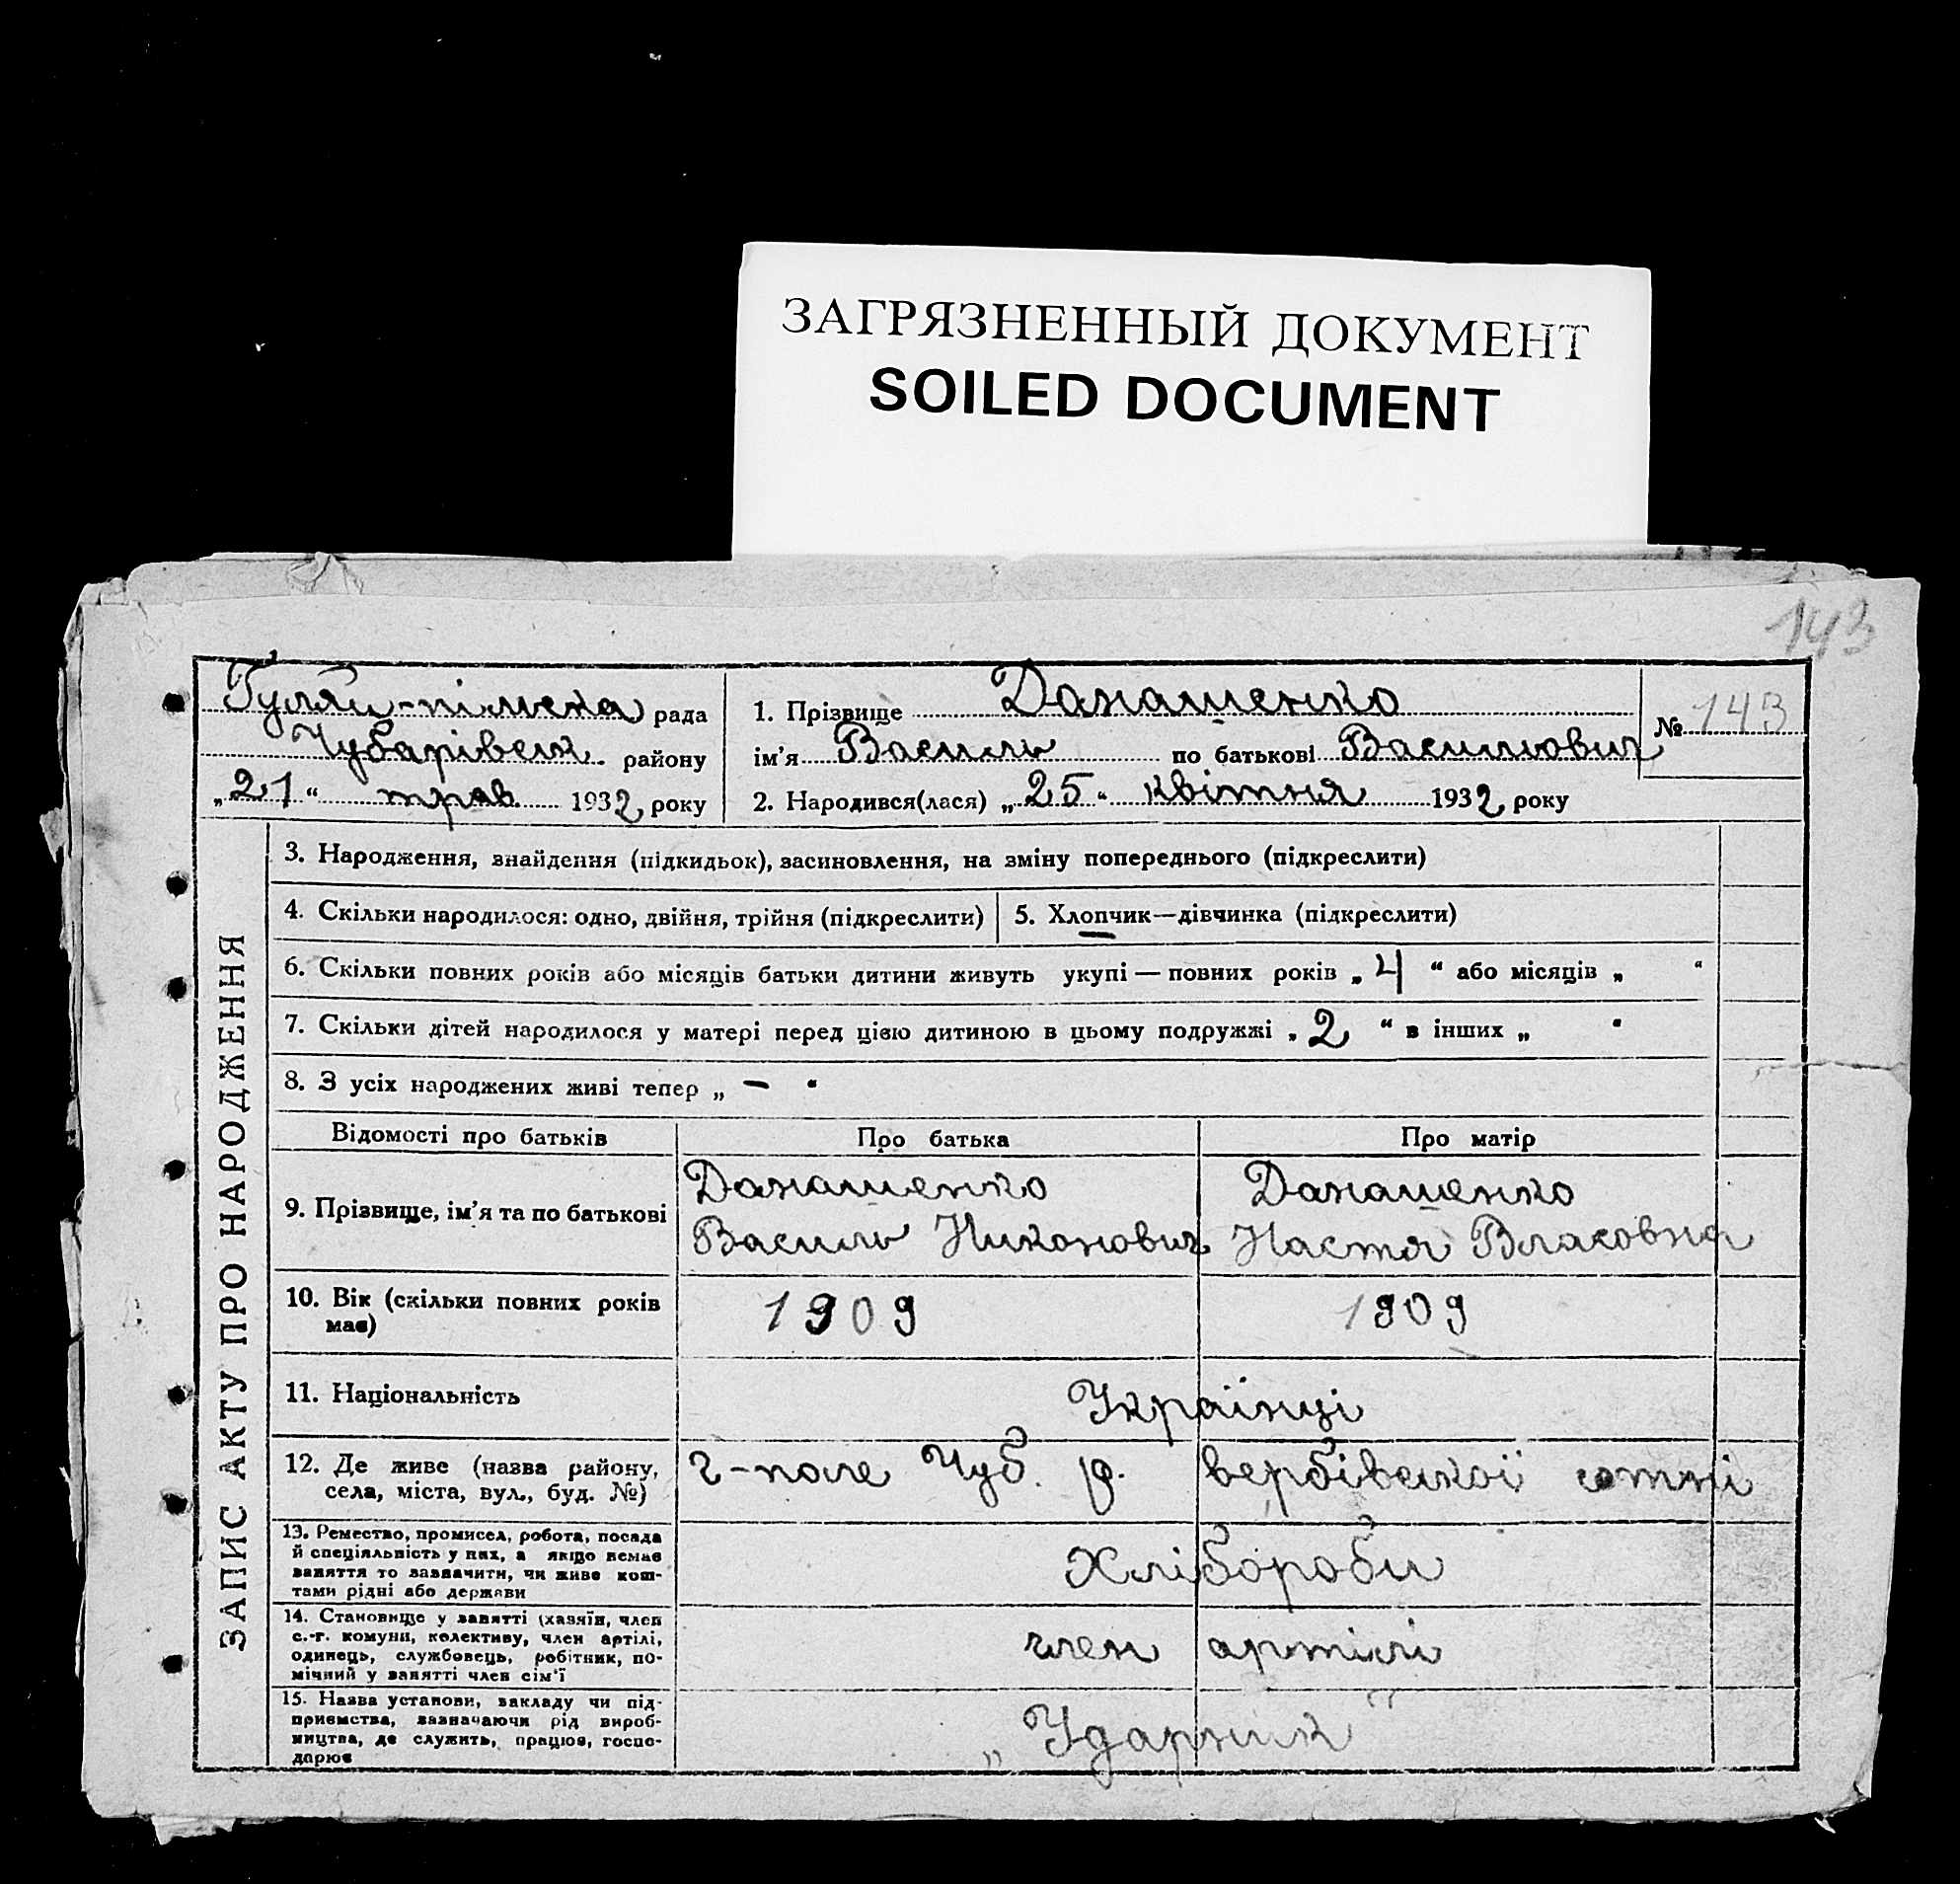 ЗАГРЯЗНЕННЫЙ ДОКУМЕНТ
SOILED DOCUMENT
143
Гуляй-пільська рада
Чубарівськ. району
„21“ трав 1932 року
1. Прізвище Данашенко
ім’я Василь по батькові Васильович
2. Народився(лася) „25“ квітня 1932 року
№ 143
ЗАПИС АКТУ ПРО НАРОДЖЕННЯ
3. Народження, знайдення (підкидьок), засиновлення, на зміну попереднього (підкреслити)
4. Скільки народилося: одно, двійня, трійня (підкреслити)
5. Хлопчик—дівчинка (підкреслити)
6. Скільки повних років або місяців батьки дитини живуть укупі — повних років „4“ або місяців „ “
7. Скільки дітей народилося у матері перед цією дитиною в цьому подружжі „2“ в інших „ “
8. З усіх народжених живі тепер „—“
Відомості про батьків
Про батька
Про матір
9. Прізвище, ім’я та по батькові
Данашенко
Василь Никонович
Данашенко
Настя Власовна
10. Вік (скільки повних років
має)
1909
1909
11. Національність
Українці
12. Де живе (назва району,
села, міста, вул., буд. №)
г-поле Чуб. р. вербівської сотні
13. Ремество, промисел, робота, посада
й спеціяльність у них, а якщо немає
заняття то зазначити, чи живе кош-
тами рідні або держави
Хлібороби
14. Становище у занятті (хазяїн, член
с.-г. комуни, колективу, член артілі,
одинець, службовець, робітник, по-
мічний у занятті член сім’ї
член артілі
15. Назва установи, закладу чи під-
приємства, зазначаючи рід вироб-
ництва, де служить, працює, госпо-
дарює
„Ударник“